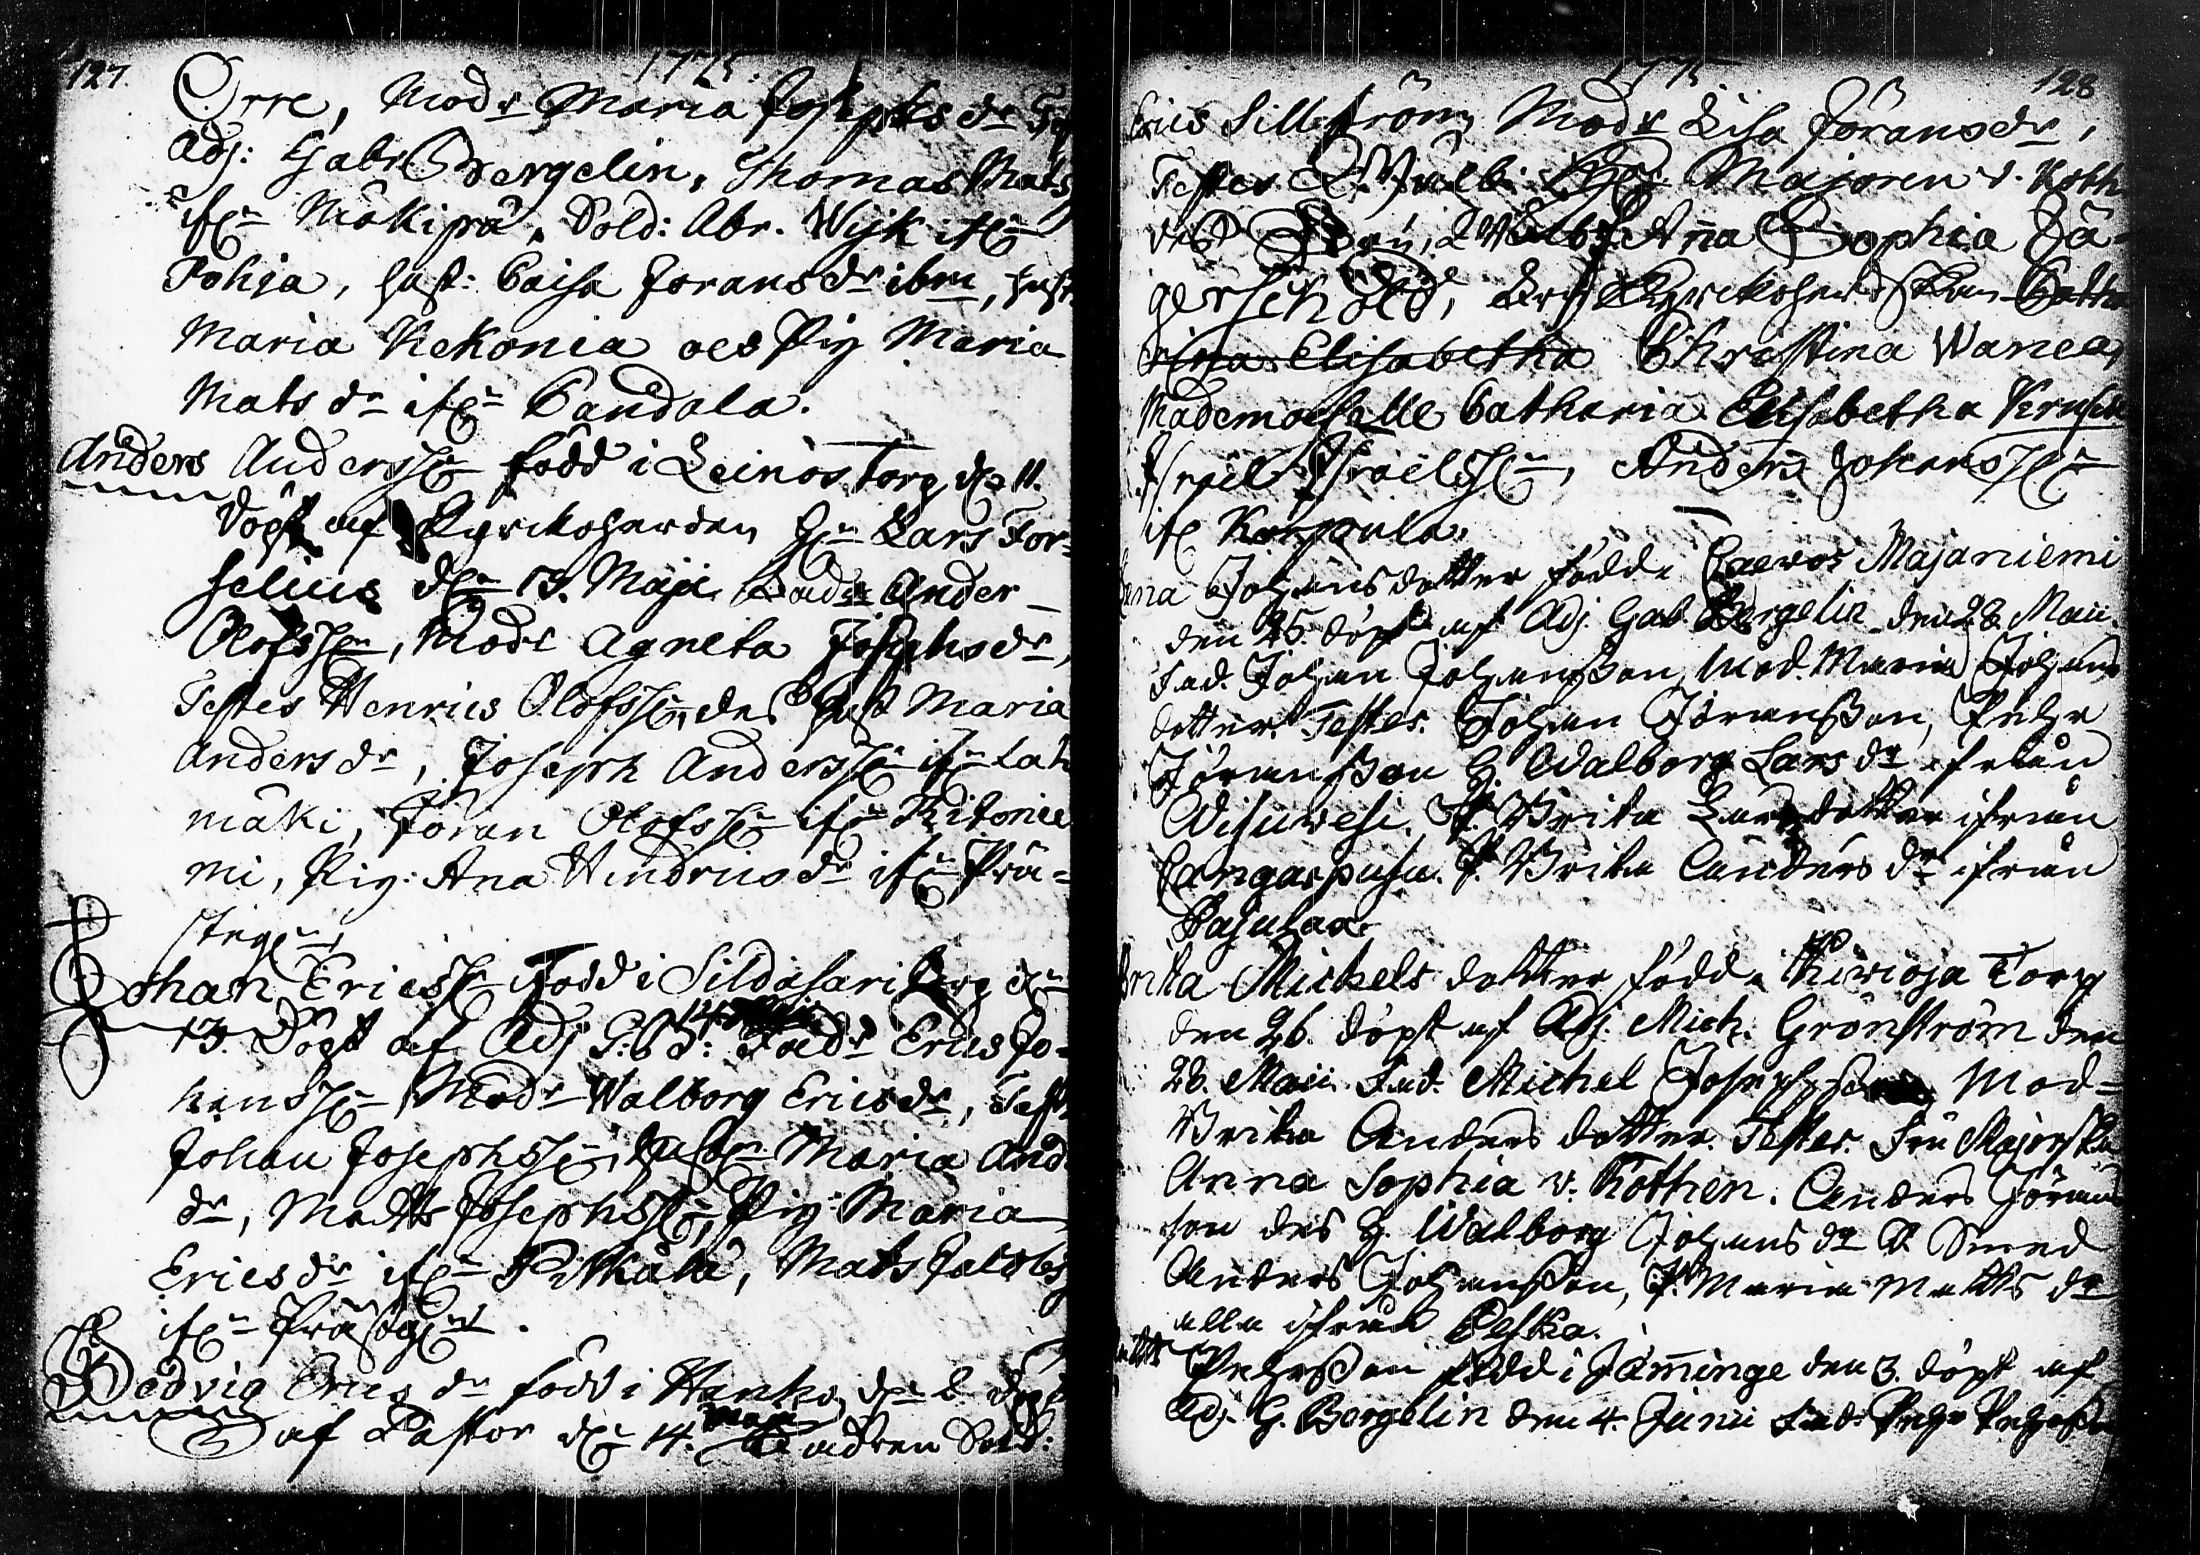 127.
1775.
Orre, Modr Maria Josephs dr
Adj: Gabr Bergelin, Thomas Mats
ifrn Mäkipä, Sold: Abr. Wijk ifrn
Pohja, hust: Caisa Jorans dr ibm, hust
Maria Kekonia och Pig Maria
Mats dr ifrn Candala.
Anders Anderss: född i Leinos Torp d: 11.
döpt af Kyrckoherden Hr Lars For=
selius dn 13. Maji Fadr Ander
Olofss:, Modr Agneta Josephs dr,
Testes Henrics Olofss:, des hust Maria
Anders dr, Joseph Anderss: ifrn Lah
mäki, Jöran Olofss: ifrn Ritonie
mi, Pig: Ana Hindrics dr ifrn Prä=
steg:
Johan Ericss: född i Sildasari Torp dn
13. Döpt af Adj G: B: 14 Fadr Erics Jo=
hanss: Modr Walborg Erics dr, Test
Johan Josephss:, hust: Maria And
dr, Matts Josephss:, Pig Maria
Erics dr ifrn Pitkälä, Mats Jacobs
ifrn Prästg:
Hedvig Erics dr född i Hanho dn 8. döpt
af Pastor dn 14. Maji Fadren Sold:
1775
128
Erics Sillström, Modr Lisa Jörans dr,
Testes Majoren v. Koth
Anna Sophia Jä=
gerschöld, Kyrckoherdskan Catha
rina Elisabetha Christina Wanea,
Mademoiselle Catharia Elisabetha Krusch
Israel Israelss:, Anders Johanss:
ifr Korpula.
Johans dotter född i Caewos Majaniemi
den 25. döpt af Adj. Gab. Bergelin den 28. Maii.
Fad. Johan Johansson, Mod. Maria Johans
dotter. Testes. Johan Göransson, Pehr
Göransson H. Walborg Lars dr ifrån
Wisuwesi. P. Brita Lars dotter ifrån
Cangaspusu. P. Brita Anders dr ifrån
Pajulax.
Brita Michels dotter född i Kiwioja Torp
den 26. döpt af Adj. Mich. Grönström den
28. Maii. Fad. Michel Josephsson Mod=
Brita Anders dotter. Testes. Fru Majorska
Anna Sophia v. Kothen. Anders Jörans
son des H. Walborg Johans dr D. Smed
Anders Johansson, P. Maria Matts dr
alla ifrån Peska.
Matts Pehrsson född i Jäminge den 3. döpt af
Adj. G. Bergelin den 4. Junii Fad: Pehr Pehrsson